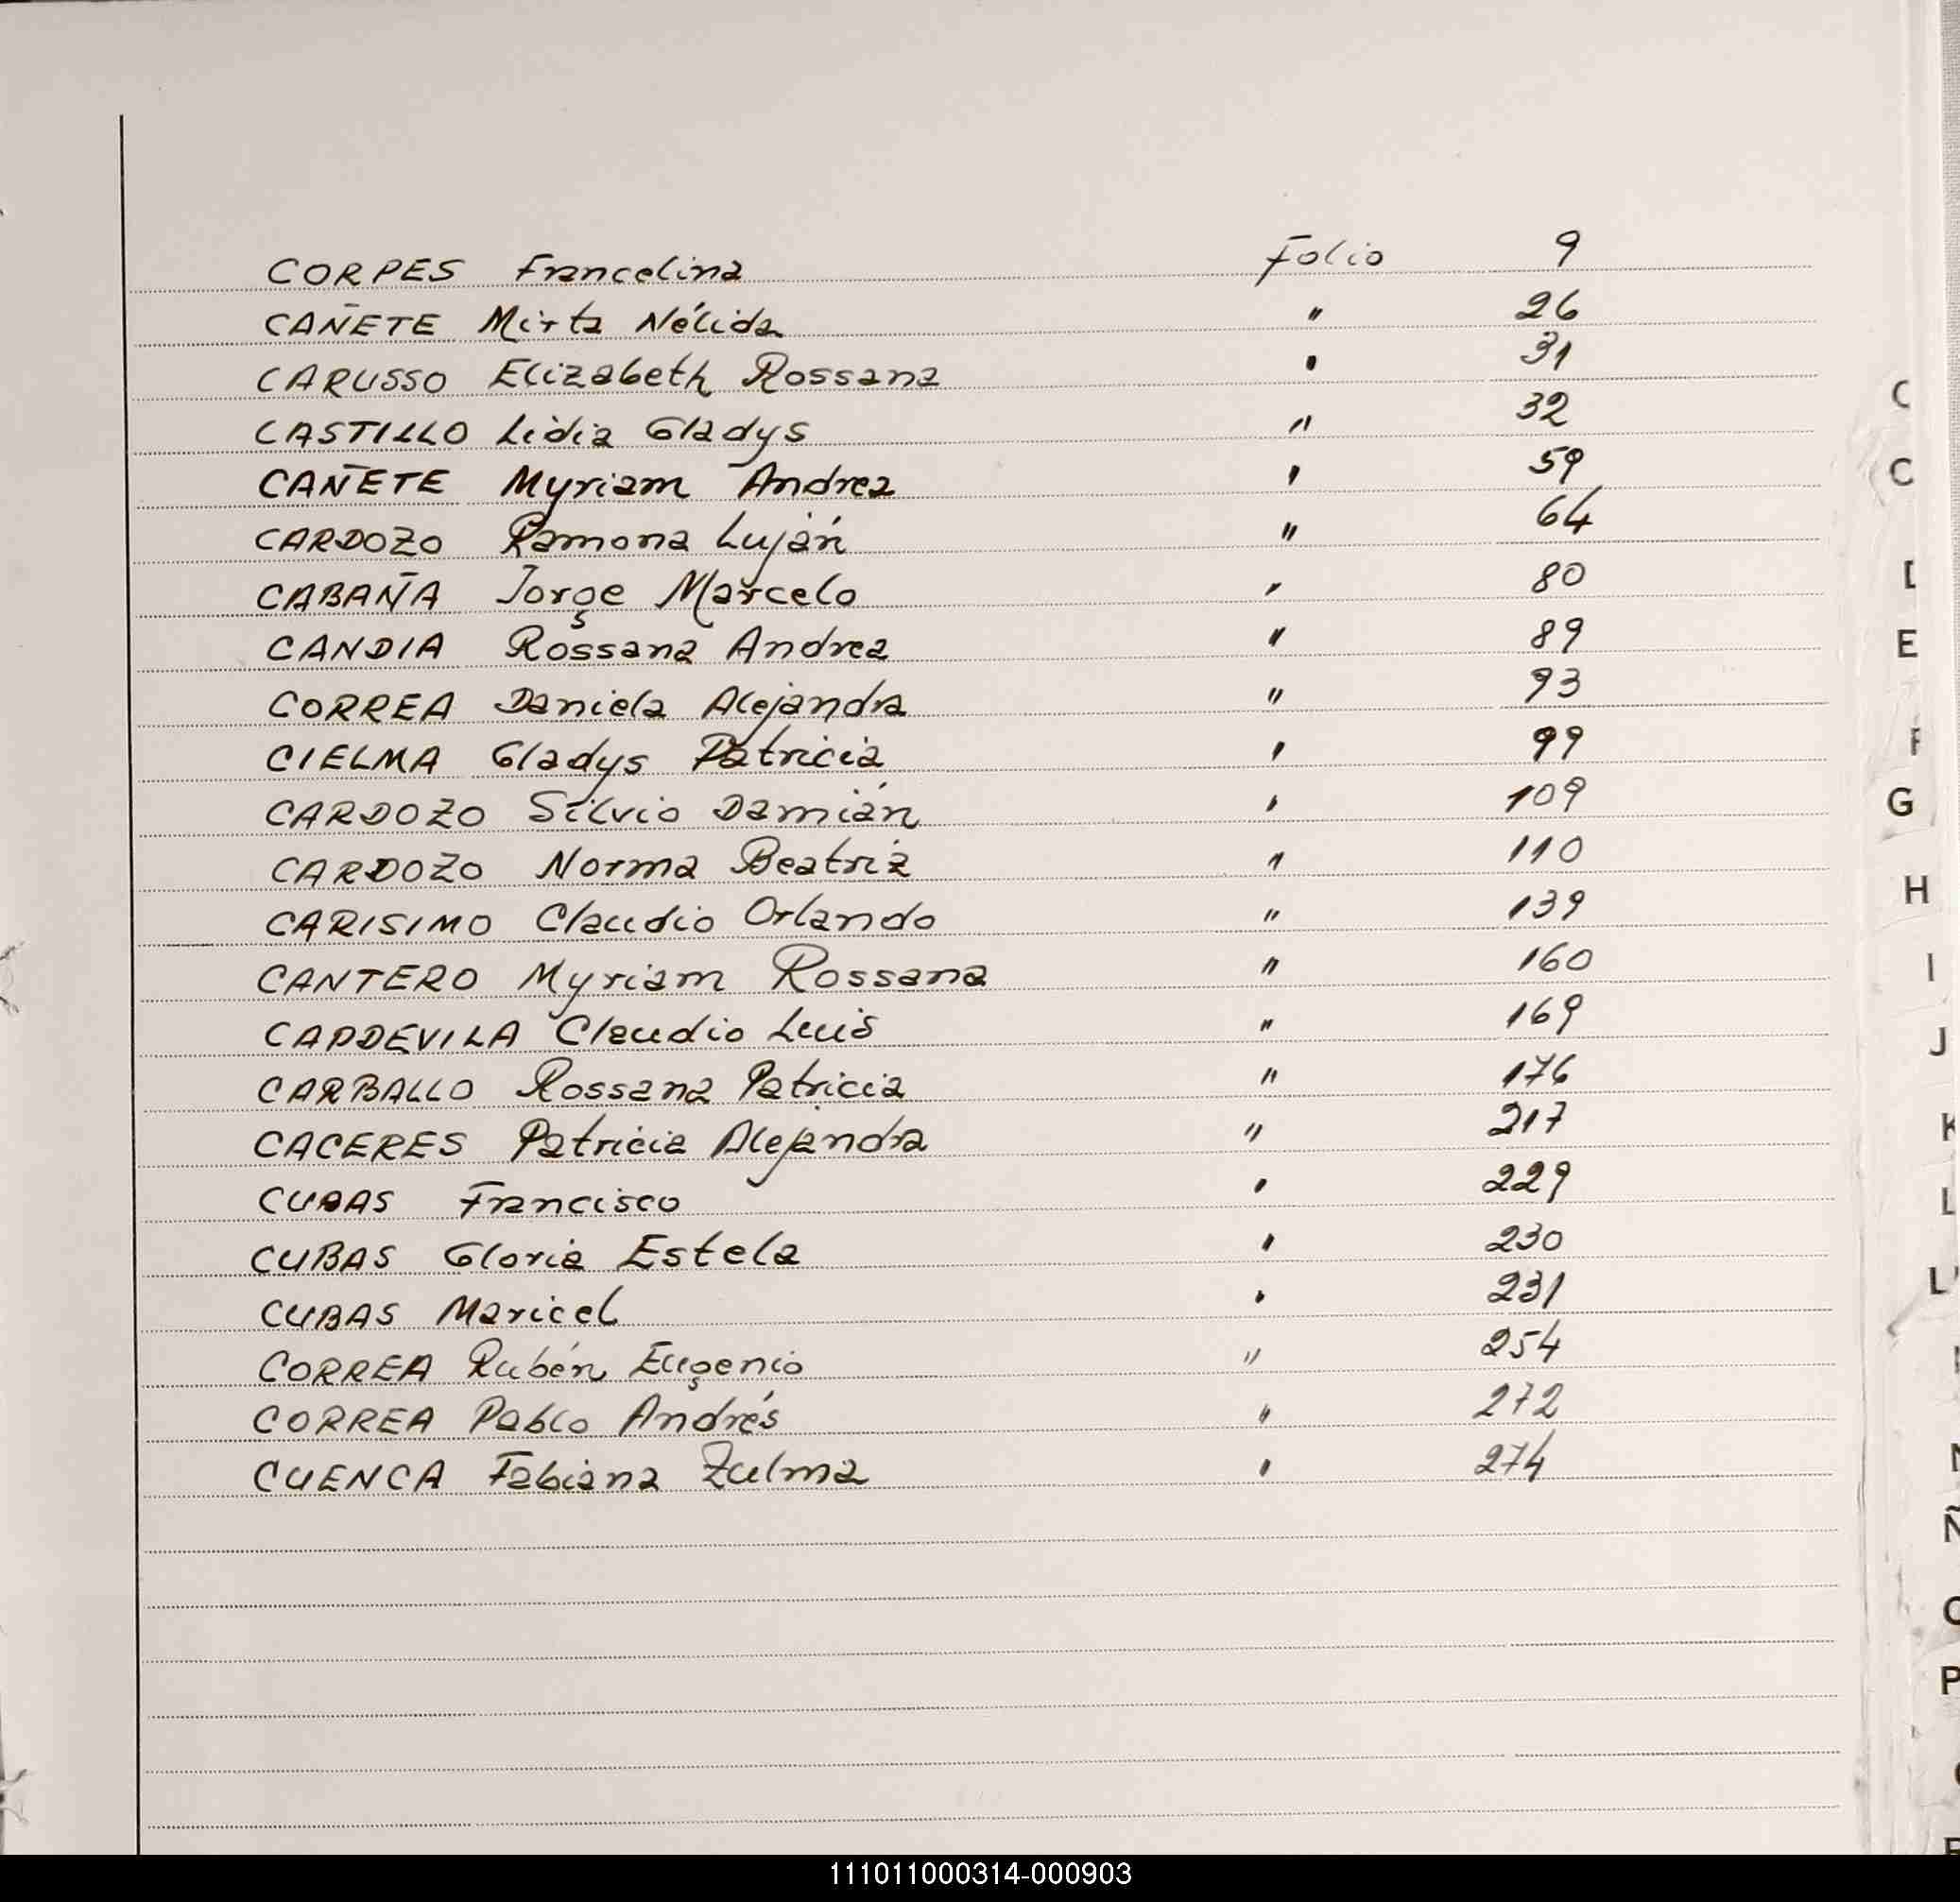 CORPES Francelina Folio 9
CAÑETE Mirta Nélida " 26
CARUSSO Elizabeth Rossana " 31
CASTILLO Lidia Gladys " 32
CAÑETE Myriam Andrea " 59
CARDOZO Ramona Luján " 64
CABAÑA Jorge Marcelo " 80
CANDIA Rossana Andrea " 89
CORREA Daniela Alejandra " 93
CIELMA Gladys Patricia " 99
CARDOZO Silvio Damián " 109
CARDOZO Norma Beatriz " 110
CARISIMO Claudio Orlando " 139
CANTERO Myriam Rossana " 160
CAPDEVILA Claudio Luis " 169
CARBALLO Rossana Patricia " 176
CACERES Patricia Alejandra " 217
CUBAS Francisco " 229
CUBAS Gloria Estela " 230
CUBAS Maricel " 231
CORREA Rubén Eugenio " 254
CORREA Pablo Andrés " 272
CUENCA Fabiana Zulma " 274
C
C
E
G
H
I
J
K
L
Ñ
P
111011000314-000903